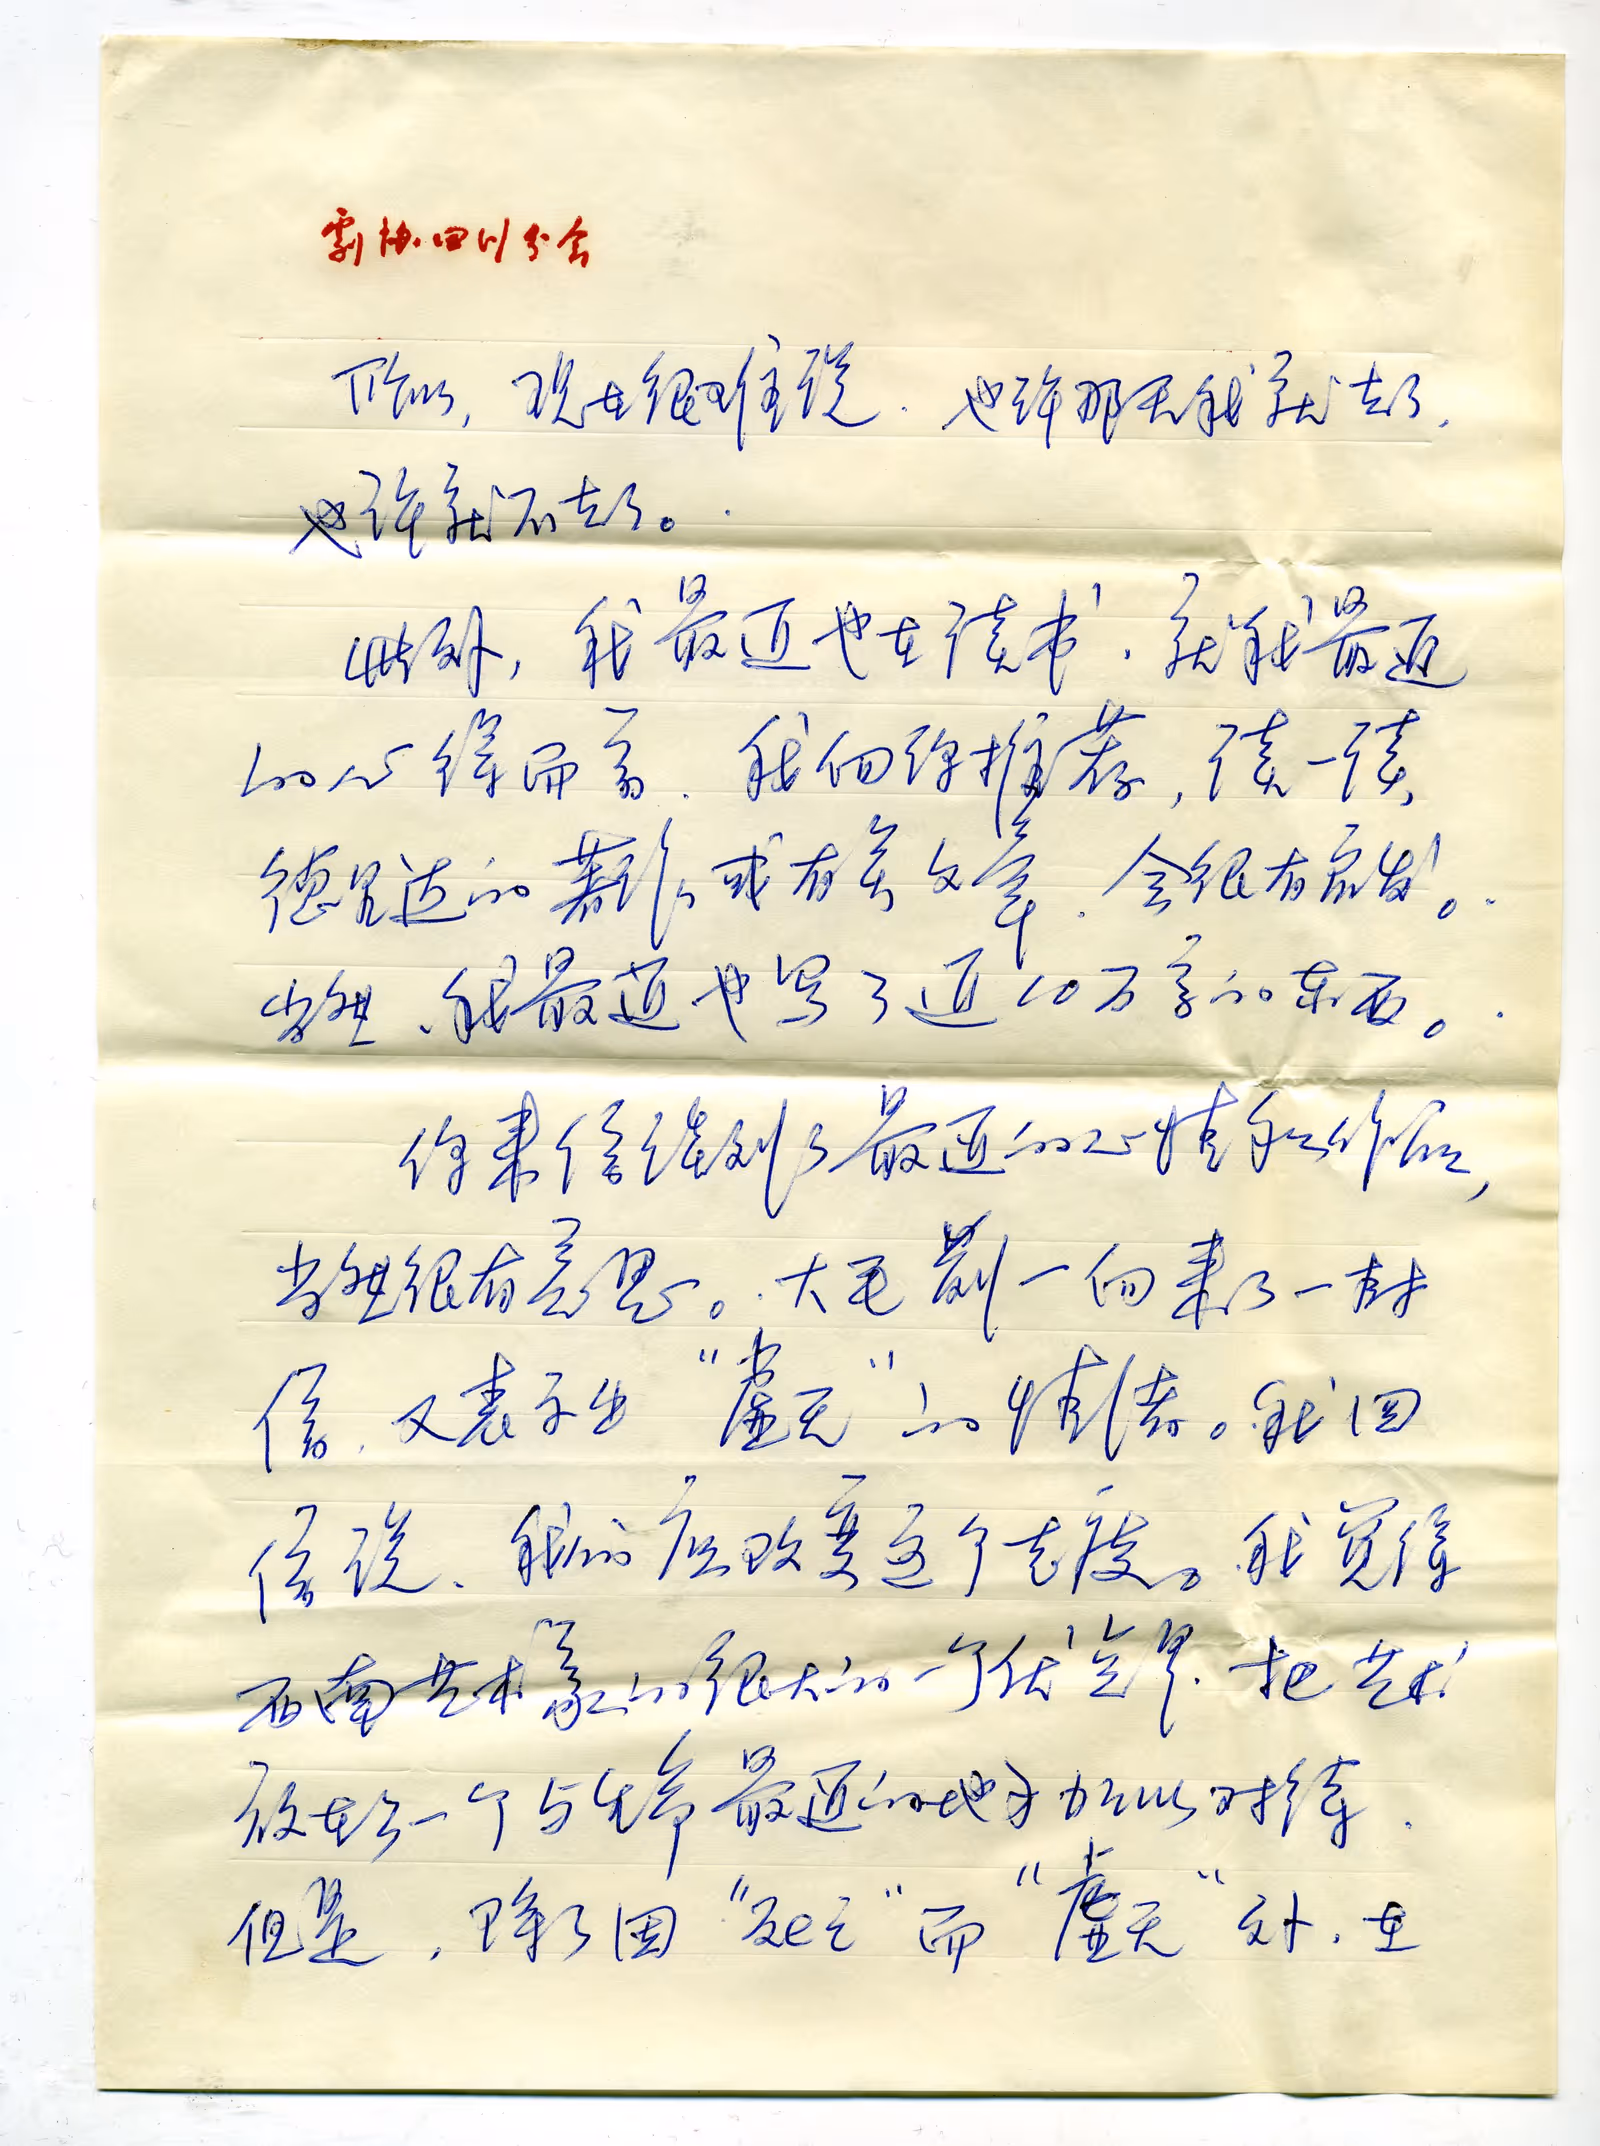 剧协四川分会
所以，现在很难说．也许那天我就去了，
也许就不去了。
此外，我最近也在读书，就我最近
的心得而言，我向你推荐，读一读，
德里达的著作或有关文章，会很有启发。
当然，我最近也写了近10万字的东西。
你来信谈到了最近的心情和作品，
当然很有意思。大毛前一向来了一封
信，又表示出“虚无”的情绪。我回
信说、我们应改变这个态度。我觉得
西南艺术家的很大的一个优点是，把艺术
放在了一个与生命最近的地方加以对待．
但是，除了因“死亡”而“虚无”外，在